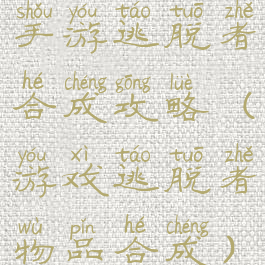 shǒu yóu táo tuō zhě
手游逃脱者
hé chéng gōng lüè
合成攻略（
yóu xì táo tuō zhě
游戏逃脱者
wù pín hé chéng
物品合成）